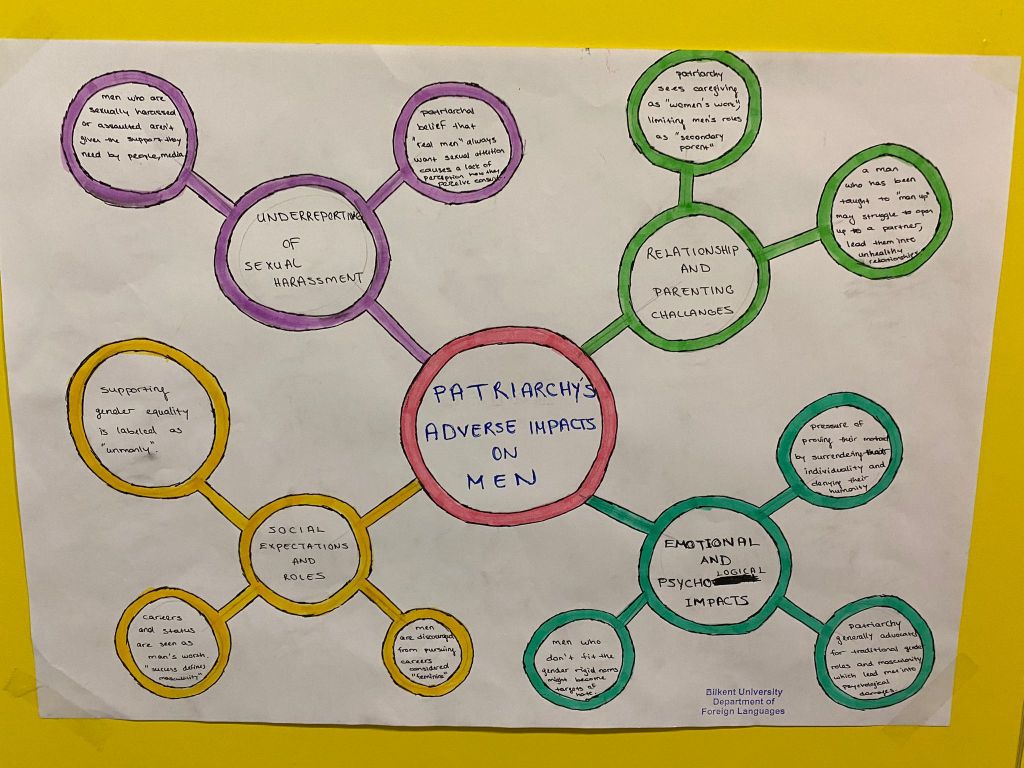 men who are
sexually harassed
or assaulted aren't
given the support they
need by people, media
patriarchal
belief that
"real men" always
want sexual attention
causes a lack of
perception how they
perceive
UNDERREPORTING
OF
SEXUAL
HARASSMENT
patriarchy
sees caregiving
as "women's work",
limiting men's roles
as "secondary
parent"
a man
who has been
taught to "man up"
may struggle to open
up to a partner,
lead them into
unhealthy
relationships
RELATIONSHIP
AND
PARENTING
CHALLANGES
PATRIARCHY'S
ADVERSE IMPACTS
ON
MEN
supporting
gender equality
is labeled as
"unmanly".
SOCIAL
EXPECTATIONS
AND
ROLES
careers
and status
are seen as
man's worth.
"success defines
masculinity"
men
are discouraged
from pursuing
careers
considered
"feminine"
pressure of
proving their
by surrendering
individuality and
denying their
humanity
EMOTIONAL
AND
PSYCHOLOGICAL
IMPACTS
men who
don't fit the
gender rigid norms
might become
targets of
patriarchy
generally advocates
for traditional gender
roles and masculinity
which lead men into
psychological
damages.
Bilkent University
Department of
Foreign Languages